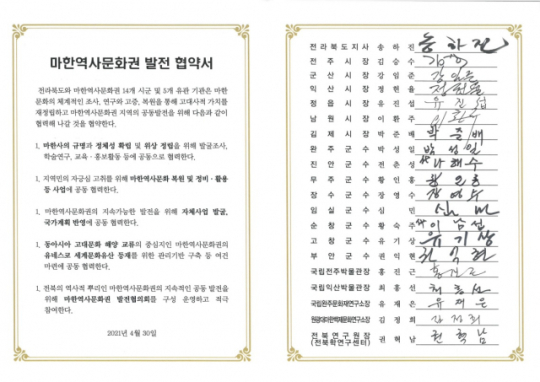 마한역사문화권 발전 협약서
전라북도와 마한역사문화권 14개 시군 및 5개 유관 기관은 마한
문화의 체계적인 조사, 연구와 고증, 복원을 통해 고대사적 가치를
재정립하고 마한역사문화권 지역의 공동발전을 위해 다음과 같이
협력해 나갈 것을 협약한다.
1. 마한사의 규명과 정체성 확립 및 위상 정립을 위해 발굴조사,
학술연구, 교육 · 홍보활동 등에 공동으로 협력한다.
1. 지역민의 자긍심 고취를 위해 마한역사문화 복원 및 정비 · 활용
등 사업에 공동 협력한다.
1. 마한역사문화권의 지속가능한 발전을 위해 자체사업 발굴,
국가계획 반영에 공동 협력한다.
1. 동아시아 고대문화 해양 교류의 중심지인 마한역사문화권의
유네스코 세계문화유산 등재를 위한 관리기반 구축 등 여건
마련에 공동 협력한다.
1. 전북의 역사적 뿌리인 마한역사문화권의 지속적인 공동 발전을
위해 마한역사문화권 발전협의회를 구성 운영하고 적극
참여한다.
2021년 4월 30일
전라북도지사 송하진 송하진
전주시장 김승수
군산시장 강임준 강임준
익산시장 정헌율 정헌율
정읍시장 유진섭 유진섭
남원시장 이환주 이환주
김제시장 박준배 박준배
완주군수 박성일 박성일
진안군수 전춘성 나해수
무주군수 황인홍 황인홍
장수군수 장영수 장영수
임실군수 심민 심민
순창군수 황숙주 이남섭
고창군수 유기상 유기상
부안군수 권익현 권익현
국립전주박물관장 홍진근 홍진근
국립익산박물관장 최흥선 최흥선
국립완주문화재연구소장 유재은 유재은
원광대마한백제문화연구소장 김정희 김정희
전북연구원장 권혁남 권혁남
(전북학연구센터)